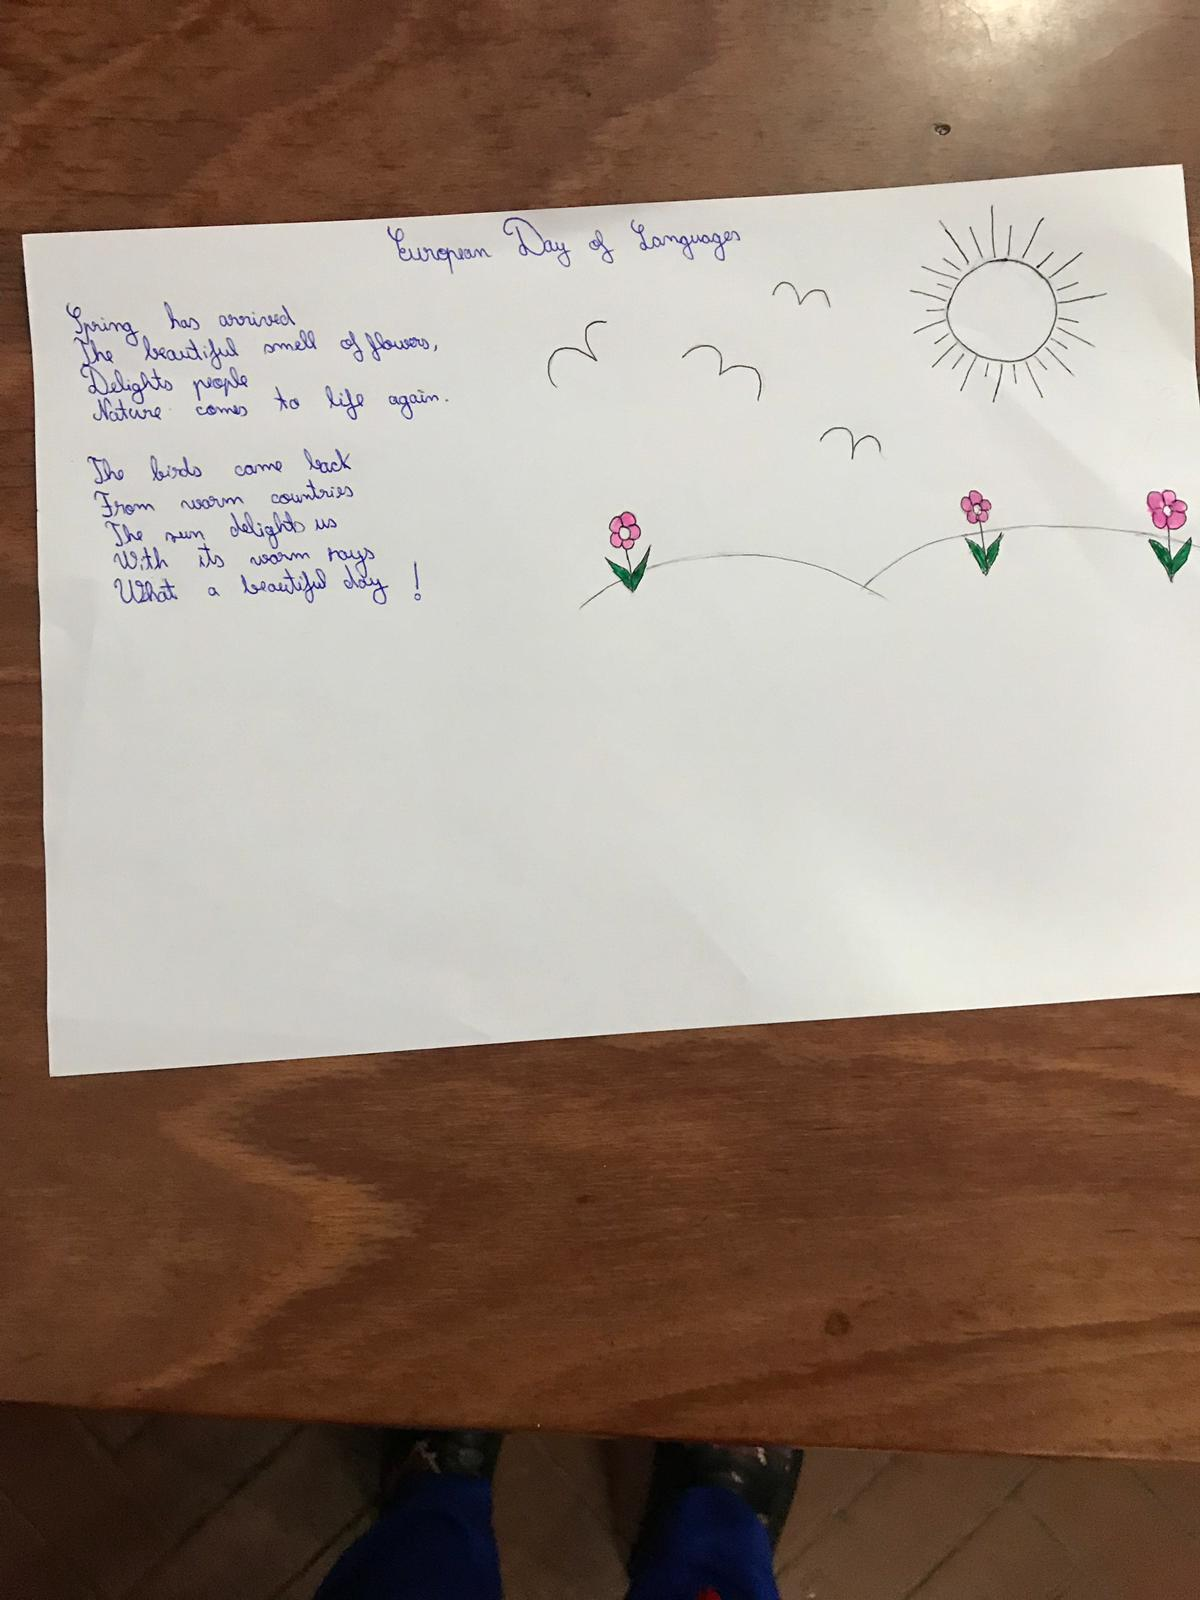 European Day of Languages
Spring has arrived
The beautiful smell of flowers,
Delights people
Nature comes to life again.
The birds came back
From warm countries
The sun delights us
With its warm rays
What a beautiful day !